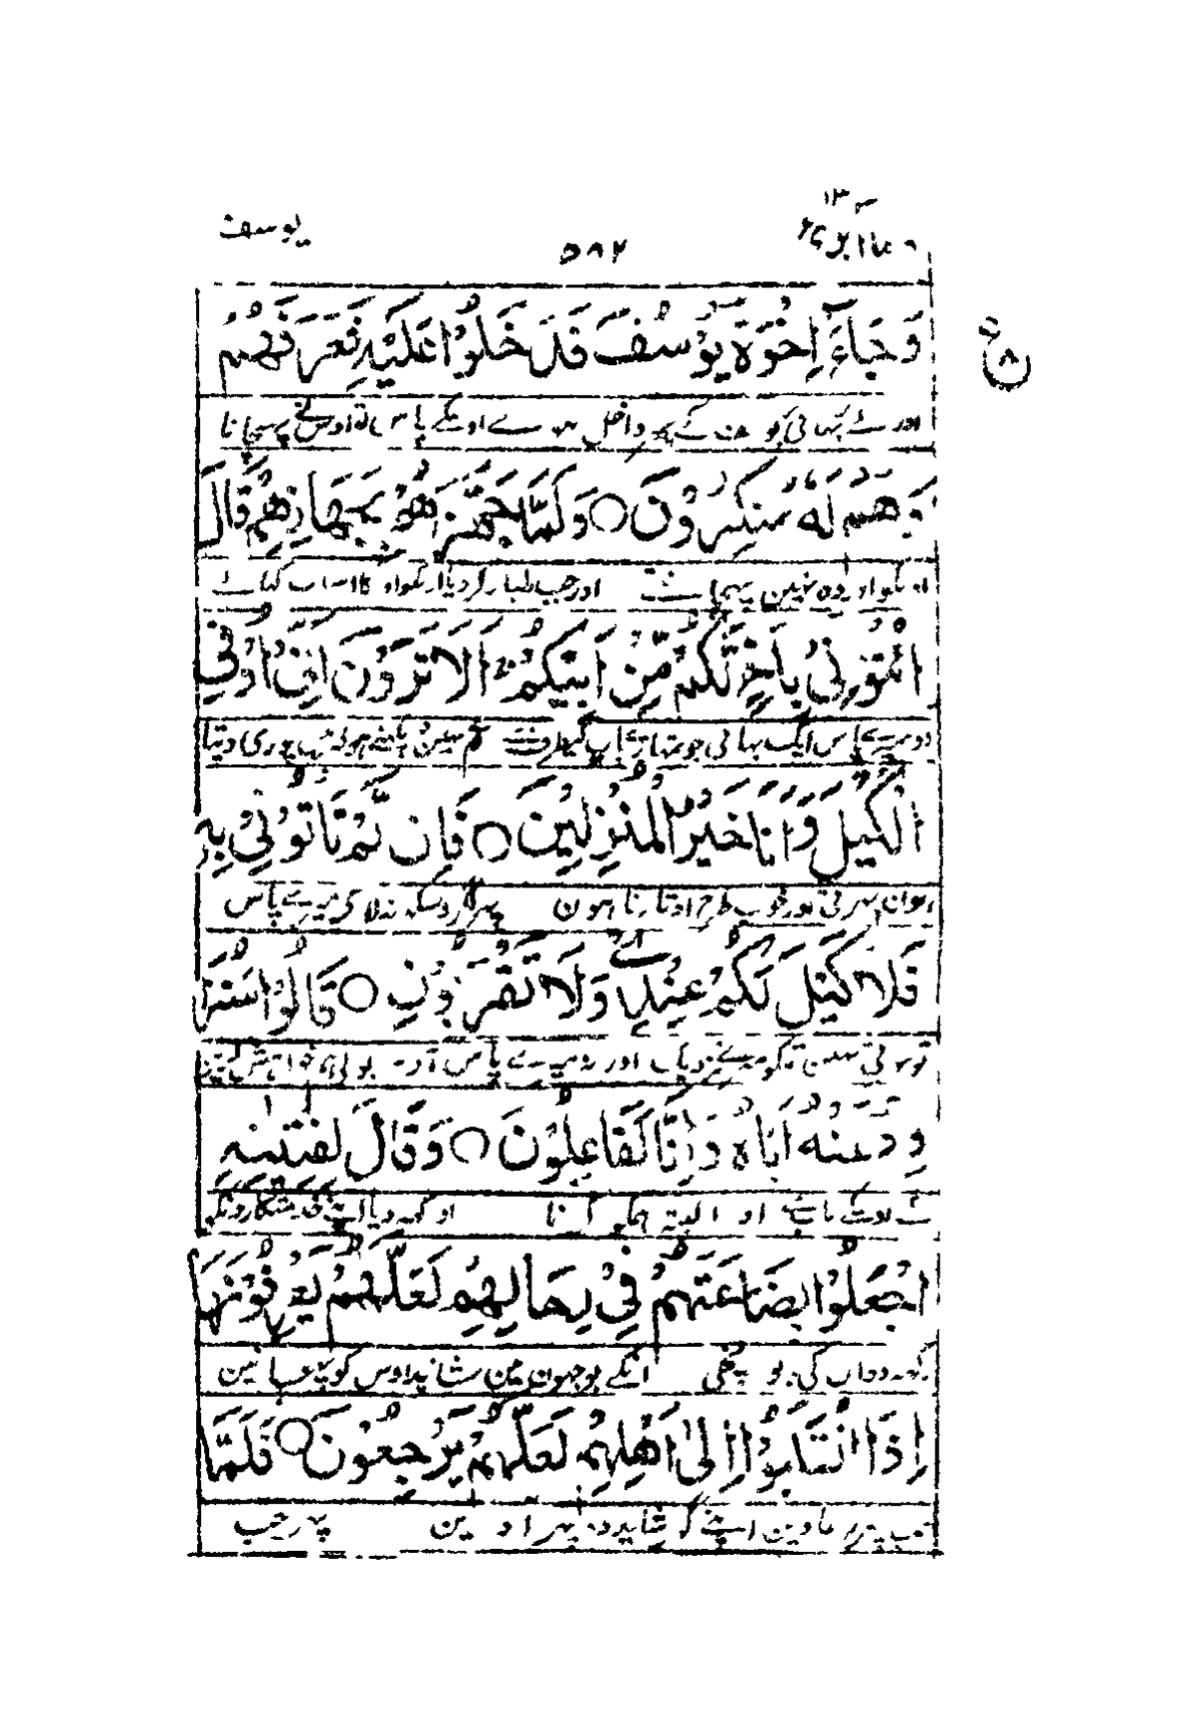 یوسف ۵۸۲ وما ابرئ ۱۳
وَجَآءَ اِخْوَةُ یُوْسُفَ فَدَخَلُوْا عَلَیْهِ فَعَرَفَهُمْ
اور آئے بھائی یوسف کے پھر داخل ہوے اوسکے پاس تو اوسنے پہچانا
وَهُمْ لَهٗ مُنْكِرُوْنَ ○ وَلَمَّا جَهَّزَهُمْ بِجَهَازِهِمْ قَالَ
اونکو اور وہ نہین پہچانتے اور جب طیار کردیا اونکو اونکا اسباب کہا
ائْتُوْنِیْ بِاَخٍ لَّكُمْ مِّنْ اَبِیْكُمْ ۚ اَلَا تَرَوْنَ اَنِّیْٓ اُوْفِی
میرے پاس ایک بھائی جو تمہارا ہے باپ کیطرف سے تم نہین دیکھتے ہو کہ مین پوری دیتا
الْكَیْلَ وَاَنَا خَیْرُ الْمُنْزِلِیْنَ ○ فَاِنْ لَّمْ تَاْتُوْنِیْ بِهٖ
ہون بھرتی اور خوب طرح اوتارتا ہون پھر اگر اوسکو نہ لائے میرے پاس
فَلَا كَیْلَ لَكُمْ عِنْدِیْ وَلَا تَقْرَبُوْنِ ○ قَالُوْا سَنُرَا
تو بھرتی نہین تمکو میرے نزدیک اور نہ میرے پاس آؤ بولے ہم خواہش کرینگے
وِدُ عَنْهُ اَبَاهُ وَاِنَّا لَفَاعِلُوْنَ ○ وَقَالَ لِفِتْیٰنِهِ
اوسکے باپ سے اور البتہ ہمکو کرنا اور کہدیا اپنے خدمتگارونکو
اجْعَلُوْا بِضَاعَتَهُمْ فِیْ رِحَالِهِمْ لَعَلَّهُمْ یَعْرِفُوْنَهَآ
رکھدو اونکی پونجی اونکے بوجھون مین شاید اوسکو پہچانین
اِذَا انْقَلَبُوْٓا اِلٰٓی اَهْلِهِمْ لَعَلَّهُمْ یَرْجِعُوْنَ ○ فَلَمَّا
جب پھر جاوین اپنے گھر شاید وہ پھر آوین پھر جب